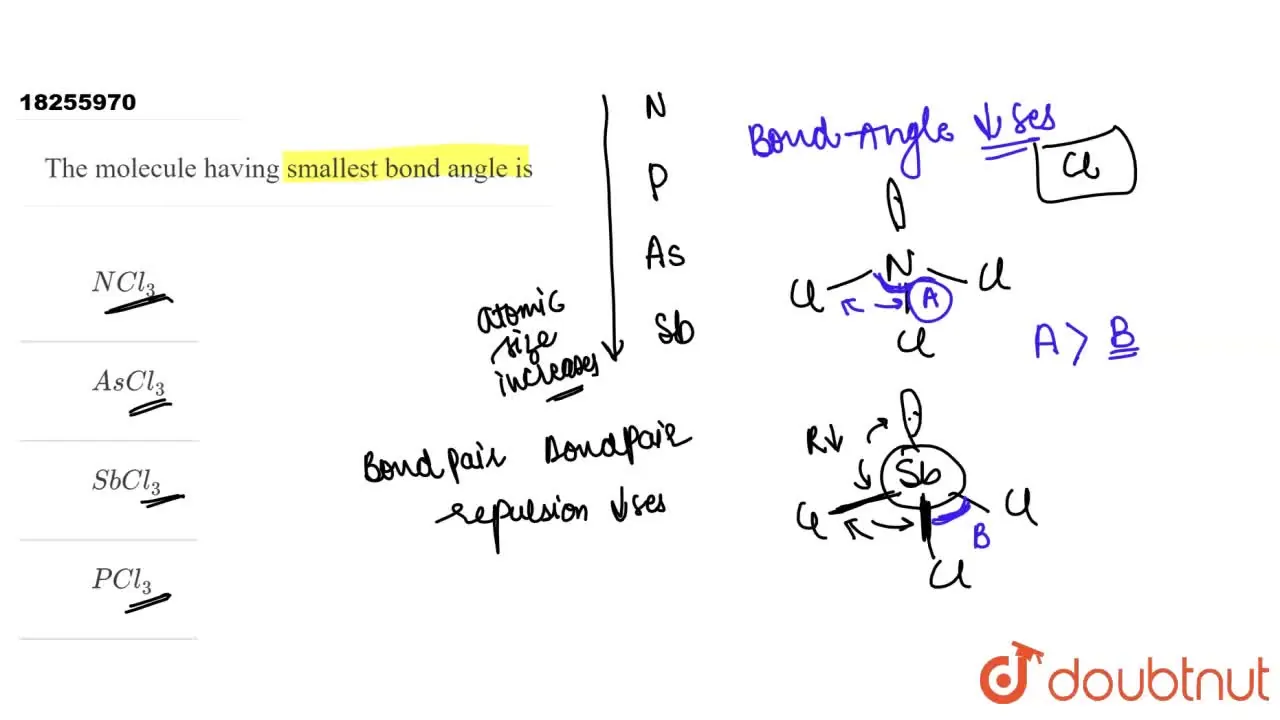 18255970
The molecule having smallest bond angle is
NCl3
AsCl3
SbCl3
PCl3
N
P
As
Sb
atomic
size
increases
Bond pair Bond pair
repulsion ↓ses
Bond Angle ↓ses
Cl
N
Cl
Cl
A
Cl
A > B
R↓
Sb
Cl
Cl
B
Cl
doubtnut